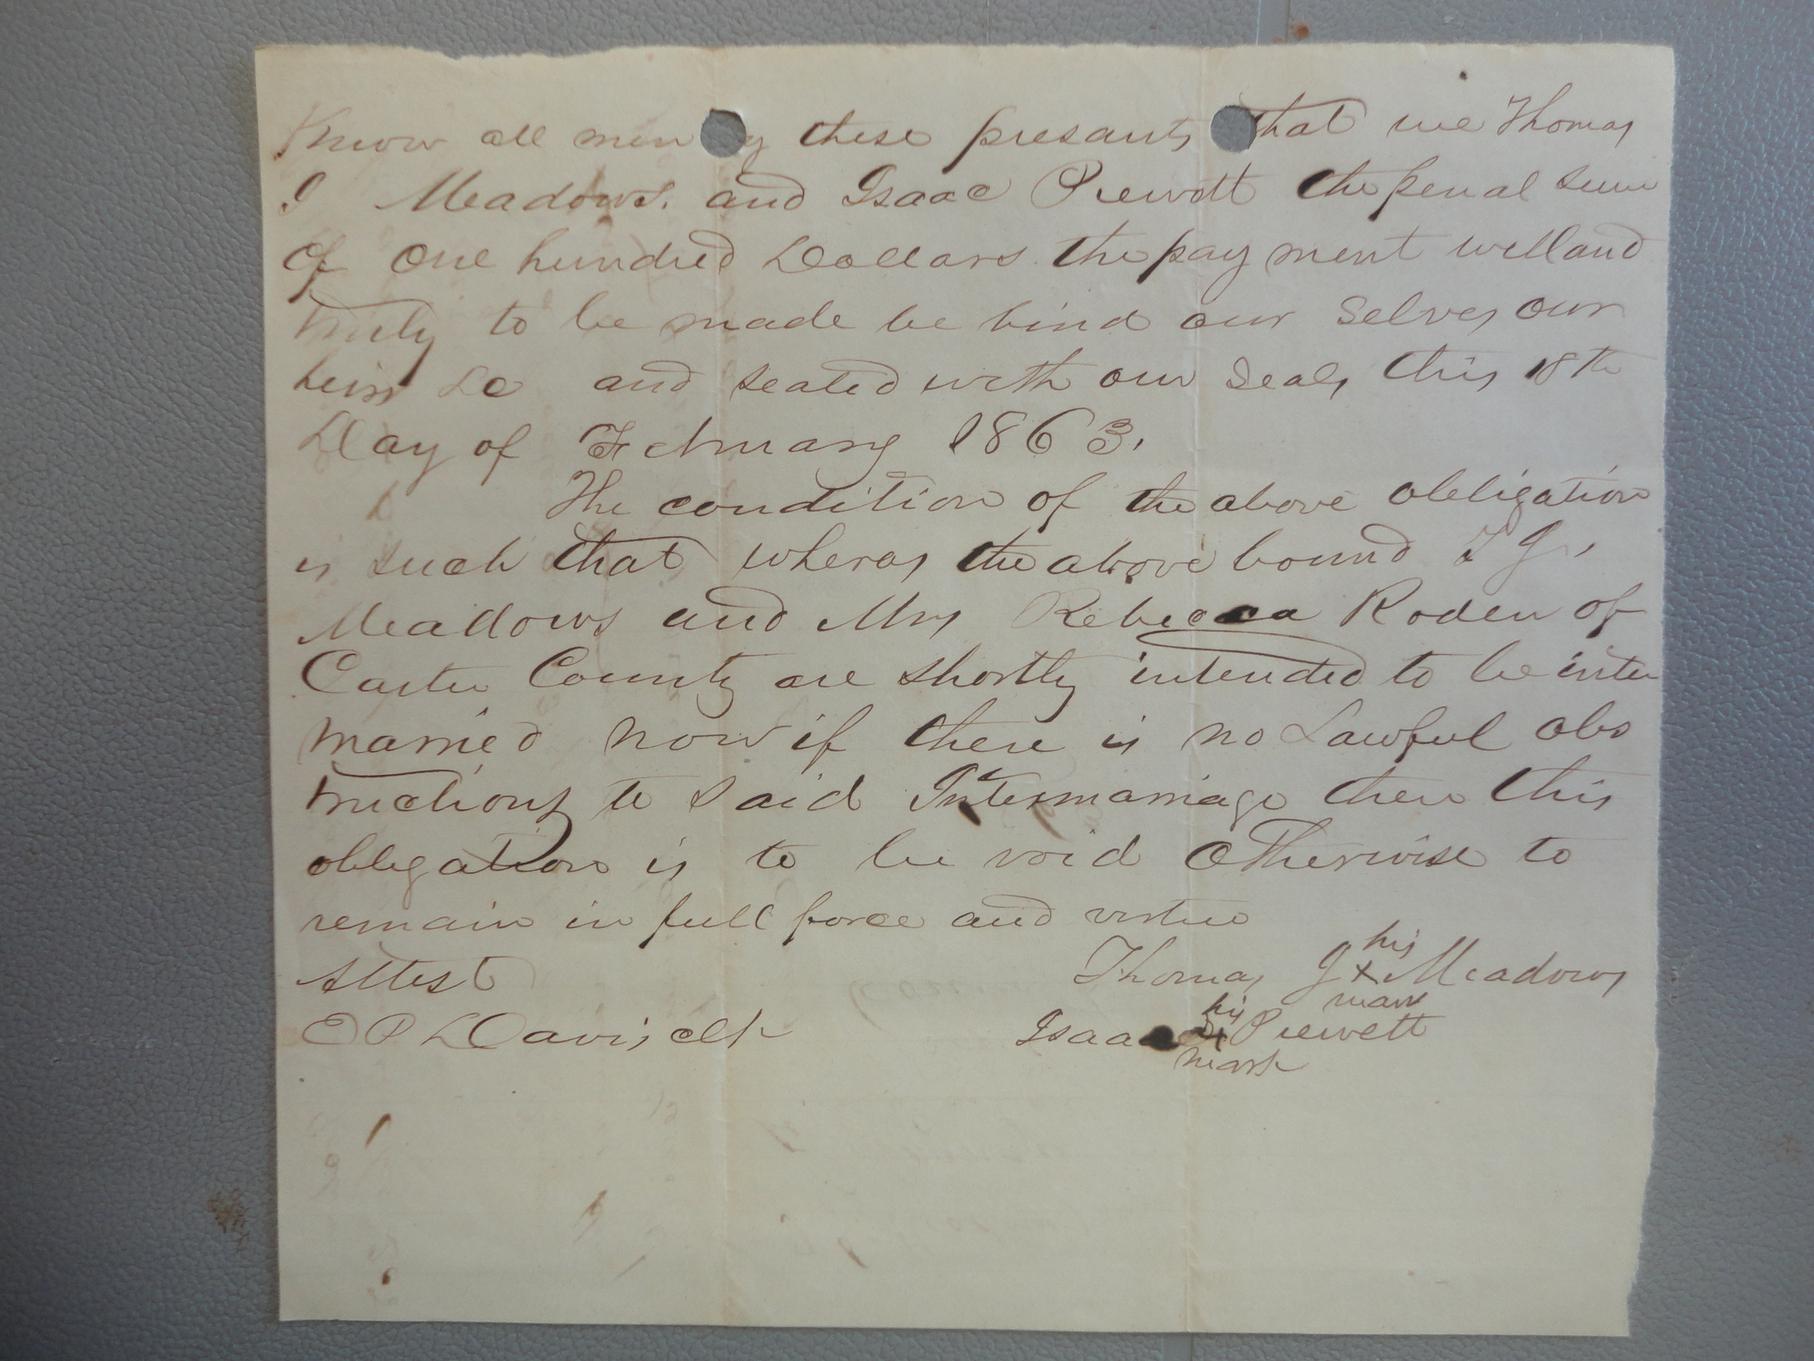 Know all men by these presants that we Thomas
J Meadows. and Isaac Prewett the penal sum
of one hundred Dollars the pay ment well and
truly to be made be bind our selves our
heirs &c and sealed with our seals this 18th
Day of February 1863.
The condition of the above obligation
is such that wheras the above bound T J.
Meadows and Mrs Rebecca Roden of
Carter County are shortly intended to be inter
married now if there is no Lawful obs
tructions to said Intermarriage then this
obligation is to be void otherwise to
remain in full force and virtue
his
Attest Thomas J x Meadows
mark
his
E P Davis clk Isaac x Prewett
mark